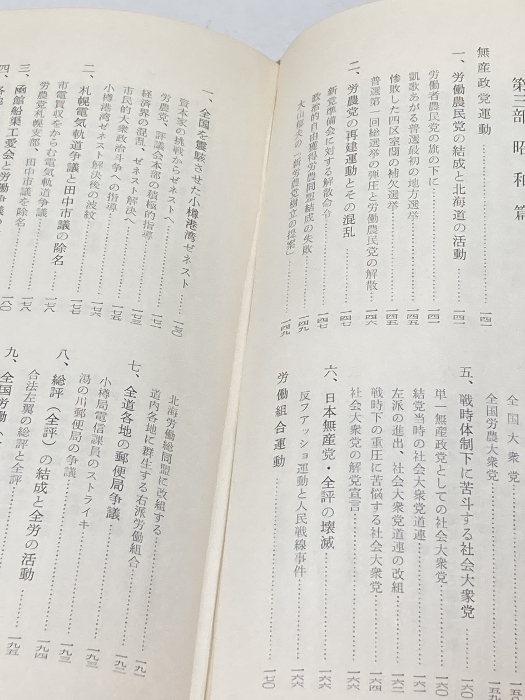 第三部 昭和篇
無産政党運動……一四一
一、労働農民党の結成と北海道の活動……一四一
労働者農民党の旗の下に……一四一
凱歌あがる普選最初の地方選挙……一四五
惨敗した四区室蘭の補欠選挙……一四五
普選第一回総選挙の弾圧と労働農民党の解散……一四六
二、労農党の再建運動とその混乱……一四七
新党準備会に対する解散命令……一四七
政治的自由獲得労農同盟結成の失敗……一四九
大山郁夫の「新労農党樹立の提案」……一四九
全国大衆党
全国労農大衆党……一五九
五、戦時体制下に苦斗する社会大衆党……一六〇
単一無産政党としての社会大衆党……一六〇
結党当時の社会大衆党道連……一六一
左派の進出、社会大衆党道連の改組……一六二
戦時下の重圧に苦悩する社会大衆党……一六四
社会大衆党の解党宣言……一六六
六、日本無産党・全評の壊滅……一六六
反ファッショ運動と人民戦線事件……一六六
労働組合運動……一七〇
一、全国を震駭させた小樽港湾ゼネスト……一七〇
資本家の挑戦からゼネストへ……一七一
労農党、評議会本部の積極的指導……一七二
経済界の混乱、ゼネスト解決へ……一七三
市民的大衆政治斗争への指導……一七五
小樽港湾ゼネスト解決後の波紋……一七六
二、札幌電気軌道争議と田中市議の除名……一七七
市電買収をからむ電気軌道争議……一七八
労農党札幌支部、田中市議を除名……一七八
三、函館船渠工愛会と労働争議……一八〇
北海労働総同盟に改組する
道内各地に群生する右派労働組合……一九一
七、全道各地の郵便局争議……一九二
小樽局電信課員のストライキ……一九二
湯の川郵便局の争議……一九三
八、総評(全評)の結成と全労の活動……一九四
合法左翼の総評と全評……一九五
九、全国労働